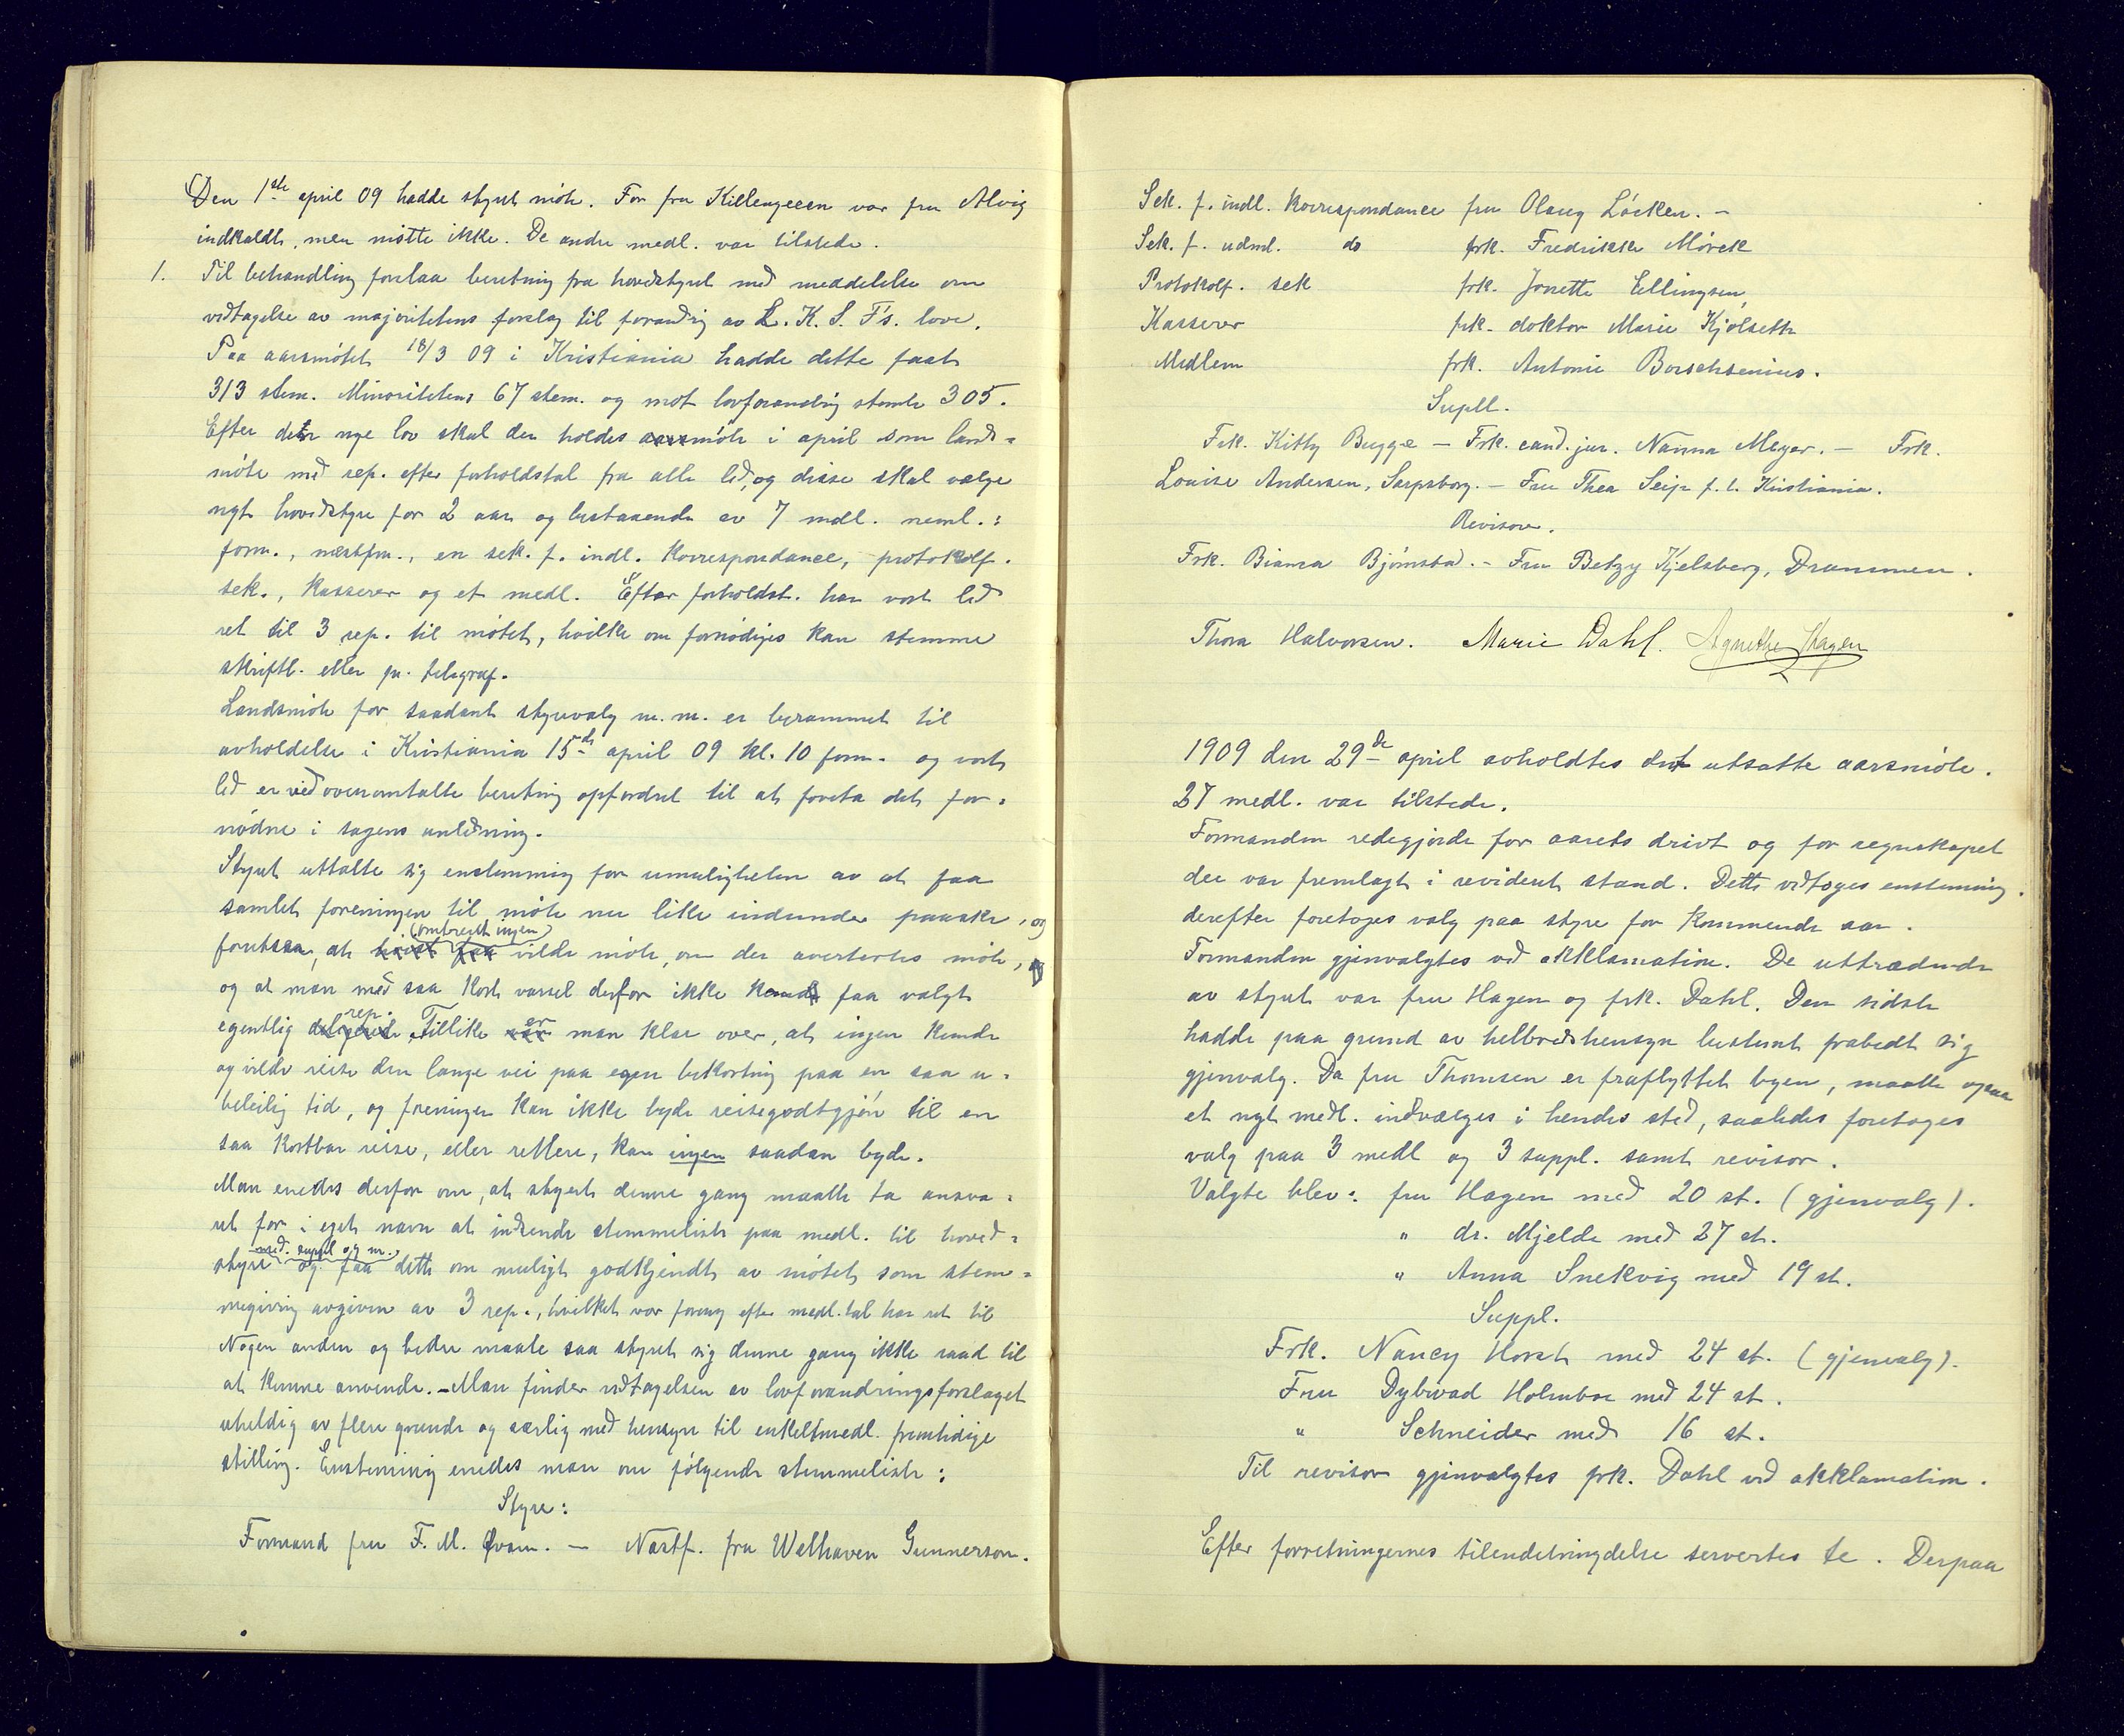 Den 1ste april 09 hadde styret møte. For fru Killengreen var fru Alvig
indkaldt, men møtte ikke. De andre medl. var tilstede.
1. Til behandling forelaa beretning fra hovedstyret med meddelelse om
vedtagelse av majoritetens forslag til forandrig av L. K. S. F's. love.
Paa aarsmøtet 18/3 09 i Kristiania hadde dette faat
313 stem. Minoritetens 67 stem. og mot lovforandrig stemte 305.
Efter den nye lov skal der holdes aarsmøte i april som lands=
møte med rep. efter forholdstal fra alle led, og disse skal vælge
nyt hovedstyre for 2 aar og bestaaende av 7 medl. neml.:
form., næstfm., en sek. f. indl. korrespondance, protokolf.
sek., kasserer og et medl. Efter forholdst. har vort led
ret til 3 rep. til møtet, hvilke om fornødiges kan stemme
skriftl. eller pr. telegraf.
Landsmøte for saadant styrevalg m. m. er berammet til
avholdelse i Kristiania 15de april 09 kl. 10 form. og vort
led er ved ovenomtalte beretnig opfordret til at foreta det for=
nødne i sagens anledning.
Styret uttalte sig enstemmig for umuligheten av at faa
samlet foreningen til møte nu like indunder paaske, og
forutsaa, at høist faa (ombrent ingen) vilde møte, om der avertertes møte, og
og at man med saa kort varsel derfor ikke kunde faa valgt
egentlig delgerete rep. Tillike var er man klar over, at ingen kunde
og vilde reise den lange vei paa egen bekostning paa en saa u=
beleilig tid, og freningen kan ikke byde reisegodtgjør til en
saa kostbar reise, eller rettere, kan ingen saadan byde.
Man enedes derfor om, at styret denne gang maatte ta ansva=
ret for i eget navn at indsende stemmeliste paa medl. til hoved=
styre med. suppl og m. og faa dette om muligt godkjendt av møtet som stem=
megivnig avgiven av 3 rep., hvilket vor forenig efter medl. tal har ret til
Nogen anden og bedre maate saa styret sig denne gang ikke raad til
at kunne anvende. - Man finder vedtagelsen av lovforandringsforslaget
uheldig av flere grunde og særlig med hensyn til enkeltmedl. fremtidige
stilling. Enstemmig enedes man om følgende stemmeliste:
Styre:
Formand fru F. M. Qvam. — Næstf. fru Welhaven Gunnerson.
Sek. f. indl. korrespondance fru Olaug Løcken. -
Sek. f. udenl. do frk. Fredrikke Mørck
Protokolf. sek frk. Jonette Ellingsen,
Kasserer frk. doktor Marie Kjølseth
Medlem frk. Antonie Borschsenius.
Supll.
Frk. Kitty Bugge — Frk. cand. jur. Nanna Meyer. — Frk.
Louise Andersen, Sarpsborg. — Fru Thea Seip f. t. Kristiania.
Revisorer.
Frk. Bianca Bjørnstad. - Fru Betzy Kjelsberg, Drammen.
Thora Halvorsen. Marie Dahl. Agnethe Hagen
1909 den 29de april avholdtes det utsatte aarsmøte.
27 medl. var tilstede.
Formanden redegjorde for aarets drivt og for regnskapet
der var fremlagt i revideret stand. Dette vedtoges enstemmig.
derefter foretoges valg paa styre for kommende aar.
Formanden gjenvalgtes ved akklamation. De uttrædende
av styret var fru Hagen og frk. Dahl. Den sidste
hadde paa grund av helbredshensyn bestemt frabedt sig
gjenvalg. Da fru Thomsen er fraflyttet byen, maatte ogsaa
et nyt medl. indvælges i hendes sted, saaledes foretoges
valg paa 3 medl og 3 suppl. samt revisor.
Valgte blev: fru Hagen med 20 st. (gjenvalg).
" dr. Mjelde med 27 st.
" Anna Snekvig med 19 st.
Suppl.
Frk. Nancy Horst med 24 st. (gjenvalg).
Fru Dybwad Holmboe med 24 st.
" Schneider med 16 st.
Til revisor gjenvalgtes frk. Dahl ved akklamation.
Efter forretningernes tilendebringdelse servertes te. Derpaa